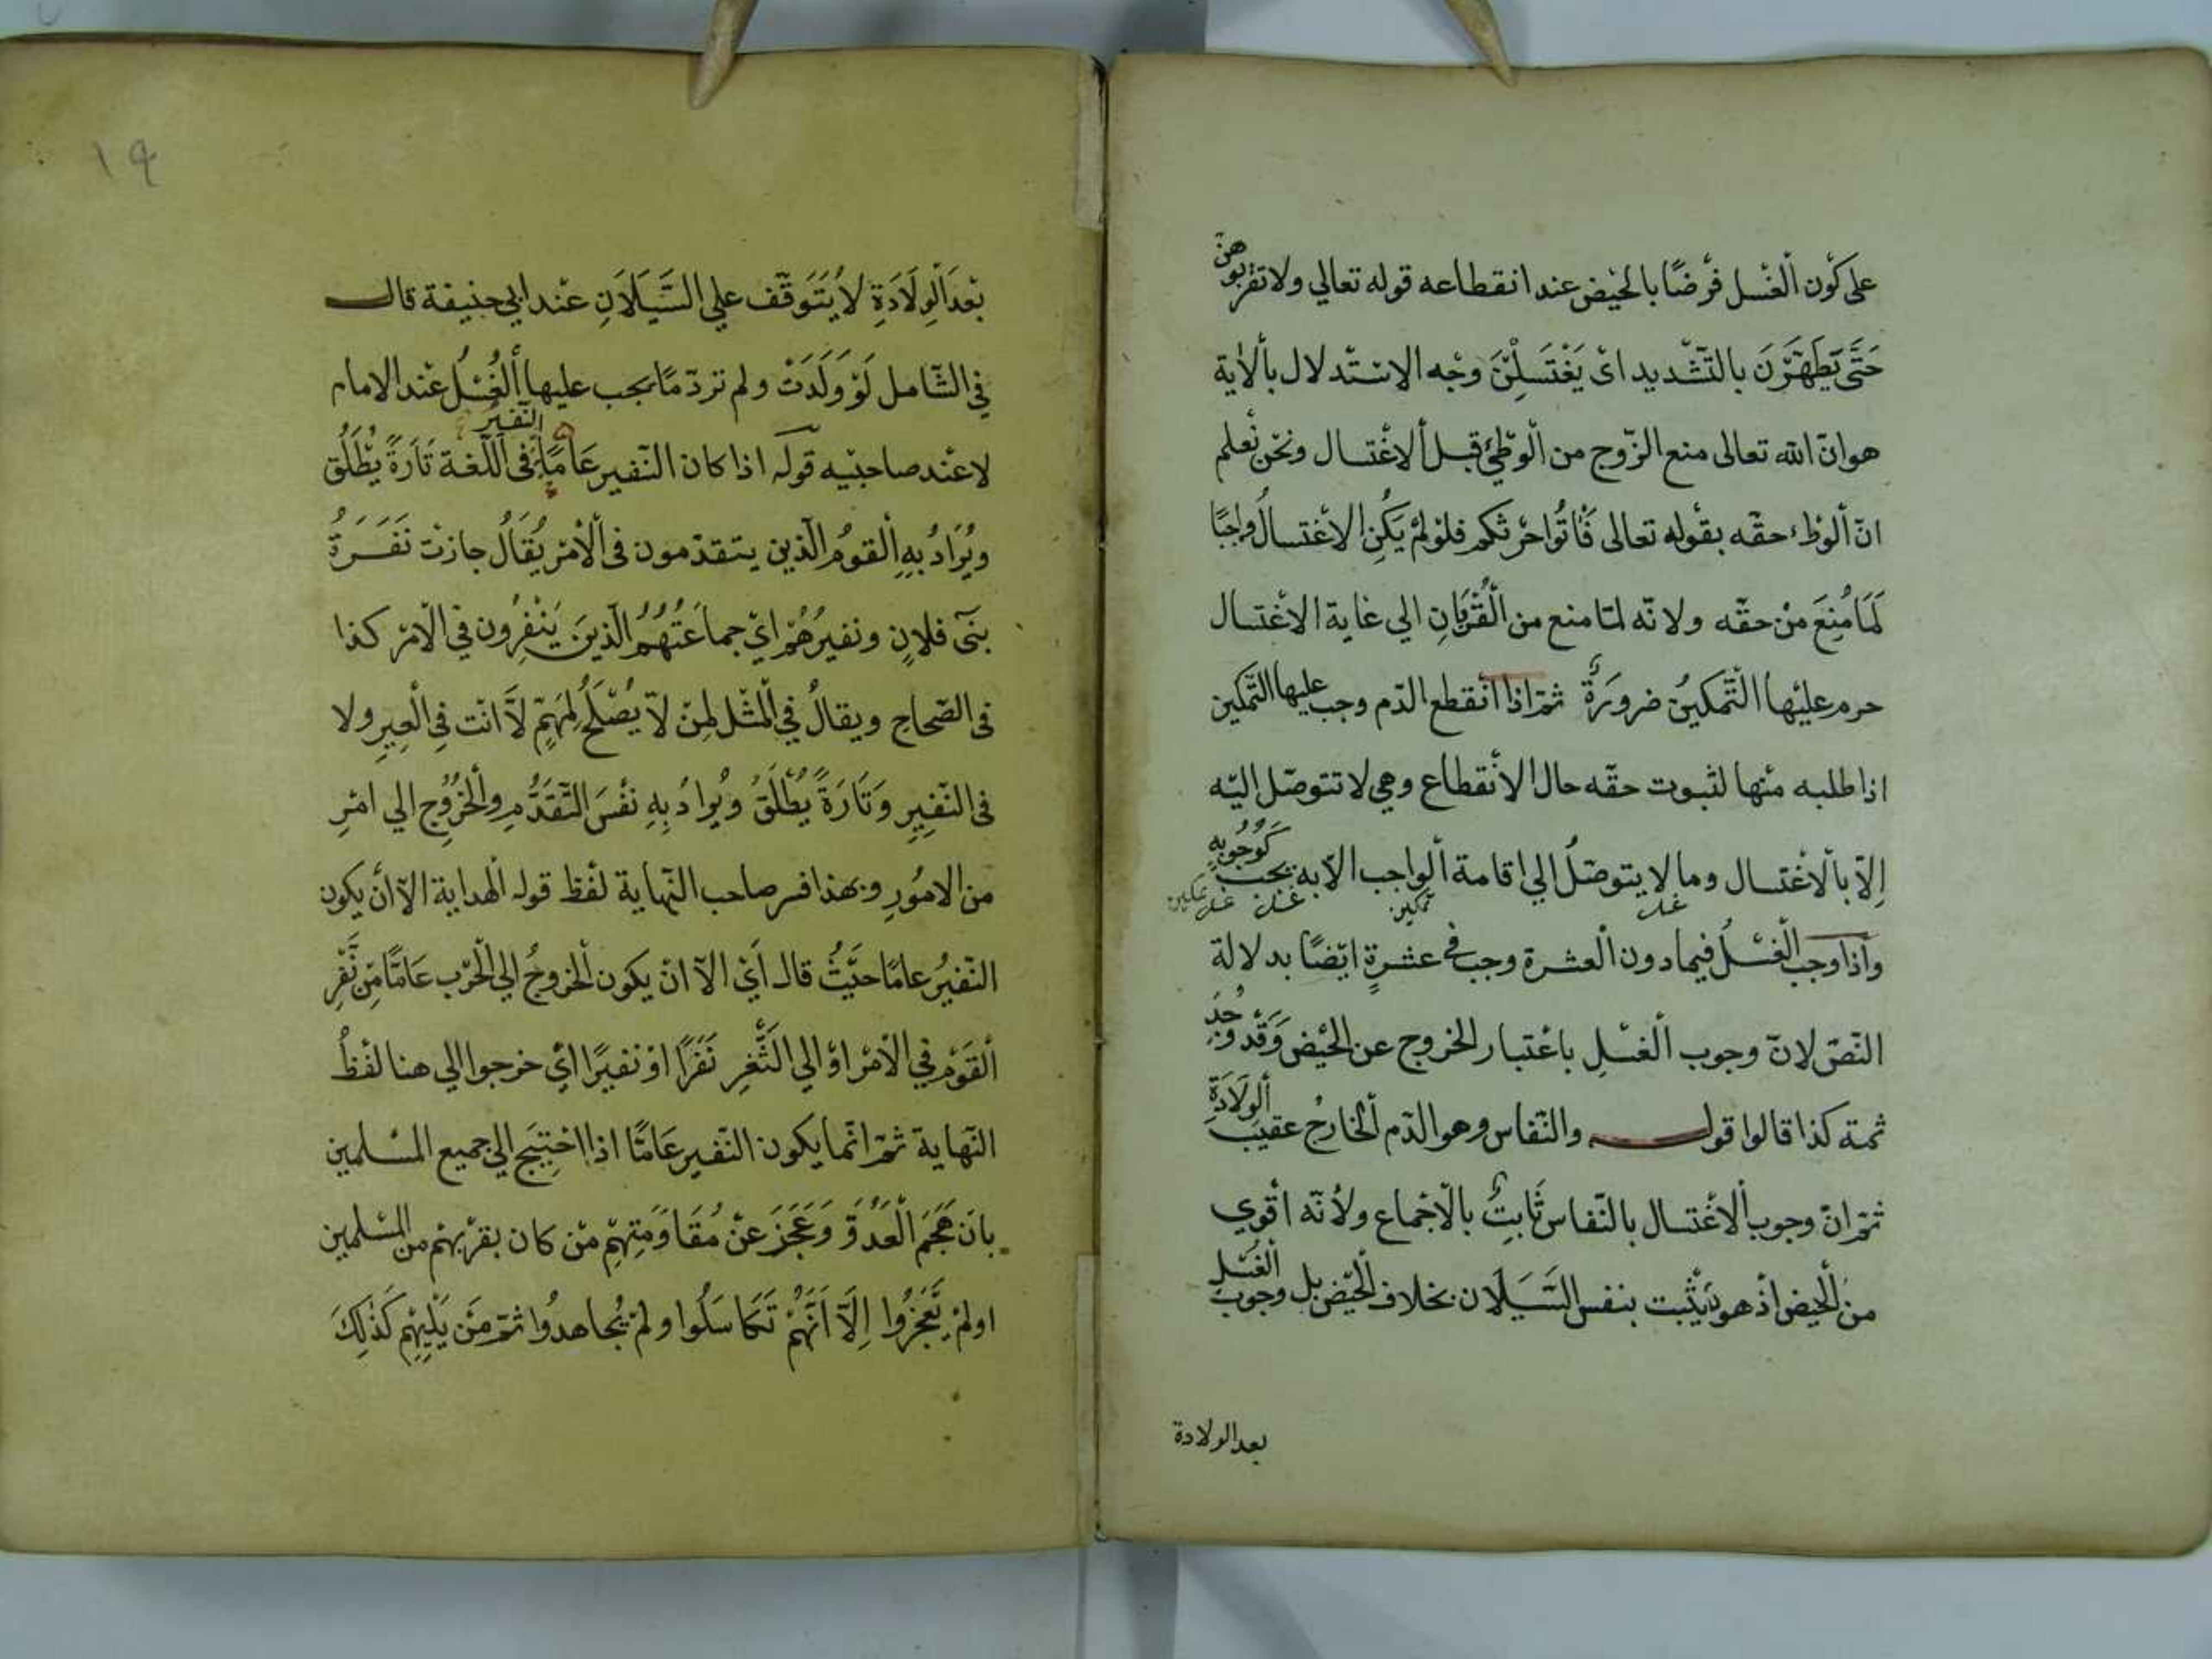 على كَوْن ألغْسل فرْضًا بالحيْض عند انقطاعه قوله تعالي ولا تقربوهنّ
حَتَّى يَطَّهَّرْنَ بالتّشْديد اىْ يَغْتَسِلْنَ وجْه الاسْتدلال بألأية
هو انّ الله تعالى منع الزّوج من ألْوطْئ قبل ألاغْتسال ونحْن نعْلم
انّ ألوطْء حقّه بقوْله تعالى فَأْتُوا حرْثكم فلوْ لمْ يَكُنِ الاغْتسالُ واجبًا
لَمَا مُنِعَ منْ حقّه ولانّه لمّا منع من القُرْبَانِ الي غاية الاغْتسال
حرم عليْها التّمْكينُ ضرورَةً ثمّ اذا انْقطع الدّم وجب عليها التّمكين
اذا طلبه منْها لثبوت حقّه حال الأنْقطاع وهي لا تتوصّل اليْه
إلاّ بألاغْتسال وما لا يتوصّلُ الي اقامة ألواجب الاّ به يجب كَوُجُوبِهِ
غسل تمكين غسل غسل تمكين
وأذا وجب الْغسْلُ فيما دون ألْعشرة وجب فى عشرةٍ ايْضًا بدلالة
النّصّ لانّ وجوب ألْغسْلِ باعْتبار الخروج عن الحيْض وَقَدْ وُجِدَ
ثمة كذا قالوا قولـه والنّفاس وهو الدّم ألخارجُ عقيبَ ألْوِلَادَةِ
ثمّ انّ وجوب ألاغْتسال بالنّفاس ثَابتٌ بالْاجْماع ولأنّه اقْوي
من الْحيض اذْ هو يَثْبت بنفس السَّيَلَان بخلاف الْحيْض بل وجوبُ الْغُسْلِ
بعد الولادة
١٩
بعْدَ الْوِلَادَةِ لاَ يُتَوَقّف علي السَّيَلَانِ عنْد ابي حنيفة قال
في الشّامل لَوْ وَلَدَتْ ولم تر دمًا يجب عليها ألْغُسْلُ عنْد الامام
لا عنْد صاحبيْه قوْله اذا كان النّفير عَامًّا النّفيرُ فى اللّغة تَارَةً يُطْلَقُ
ويُرَادُ بِهِ الْقومُ الّذين يتقدّمون فى الْأمْر يُقَالُ جازتْ نَفَرَةُ
بَنى فلانٍ ونفيرُهُمْ ايْ جماعَتُهُمُ الّذِينَ يَنْفِرُون في الْامْر كذا
فى الصّحاح ويقالُ في الْمثْل لمنْ لاَ يُصْلَحُ لِمُهِمٍّ لاَ انْت فِي الْعِيرِ ولا
فى النّفِيرِ وَتَارَةً يُطْلَقُ وَيُرادُ بِهِ نفْسَ التّقَدُّمِ والْخُرُوج الي امْرِ
من الامُورِ وبهذا فسر صاحب النّهاية لفْظ قوله الْهداية الاّ انْ يكون
النّفيرُ عامًّا حيْثُ قال اَيْ الاّ انْ يكون ألْخروجُ الي الْحَرْب عَامًّا مِنْ نَفْرِ
ألقَوْم في الْأمْر اوْ الي الثَّغْرِ نَفَرًا اوْ نفيرًا ايْ خرجوا الي هنا لفْظُ
النّهاية ثمّ انّما يكون النّفير عَامًّا اذا احْتِيجَ الي جميع المسْلمين
بان هَجَمَ الْعَدُوُّ وَعَجَزَ عنْ مُقَاوَمَتِهِمْ منْ كان بقرْبهْم من المسْلمين
او لمْ يَعْجزُوا إِلاَّ اَنَّهُمْ تَكَاسَلُوا ولمْ يُجاهدُوا ثمّ مَنْ يَلِيهِمْ كَذٰلِكَ